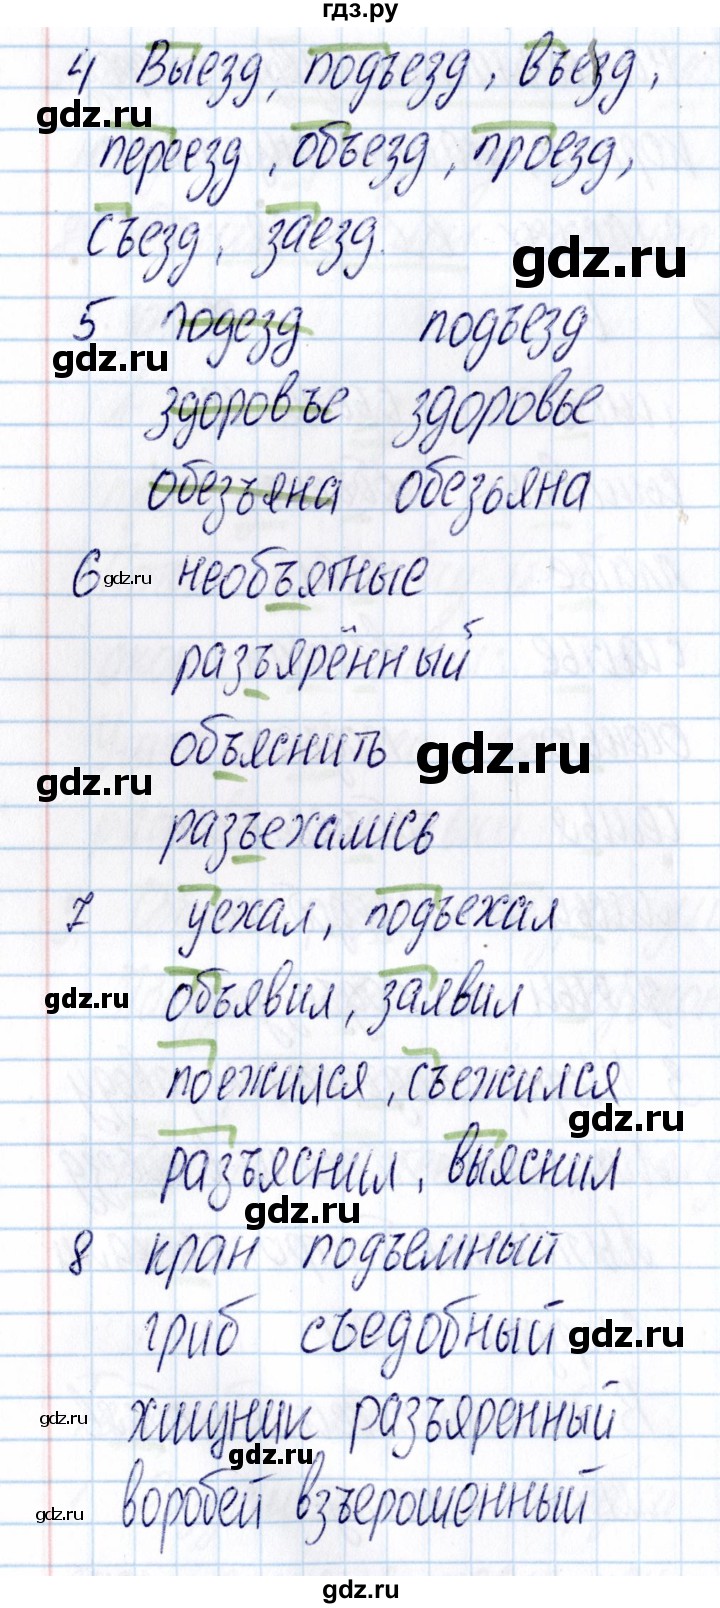 гдз.ру
4 Выезд, подъезд, въезд,
gdz.ru
переезд, объезд, проезд,
съезд, заезд.
gdz.ru
5 подезд подъезд
gdz.ru
здоровъе здоровье
обезъяна обезьяна
6 gdz.ru необъятные
разъярённый
объяснить gdz.ru
gdz.ru
разъехались
7 уехал, подъехал
gdz.ru объявил, заявил
поежился, съежился
gdz.ru
разъяснил, выяснил
gdz.ru
8 кран подъемный
гриб съедобный gdz.ru
gdz.ru хищник разъяренный
gdz.ru
gdz.ru воробей взъерошенный
gdz.ru